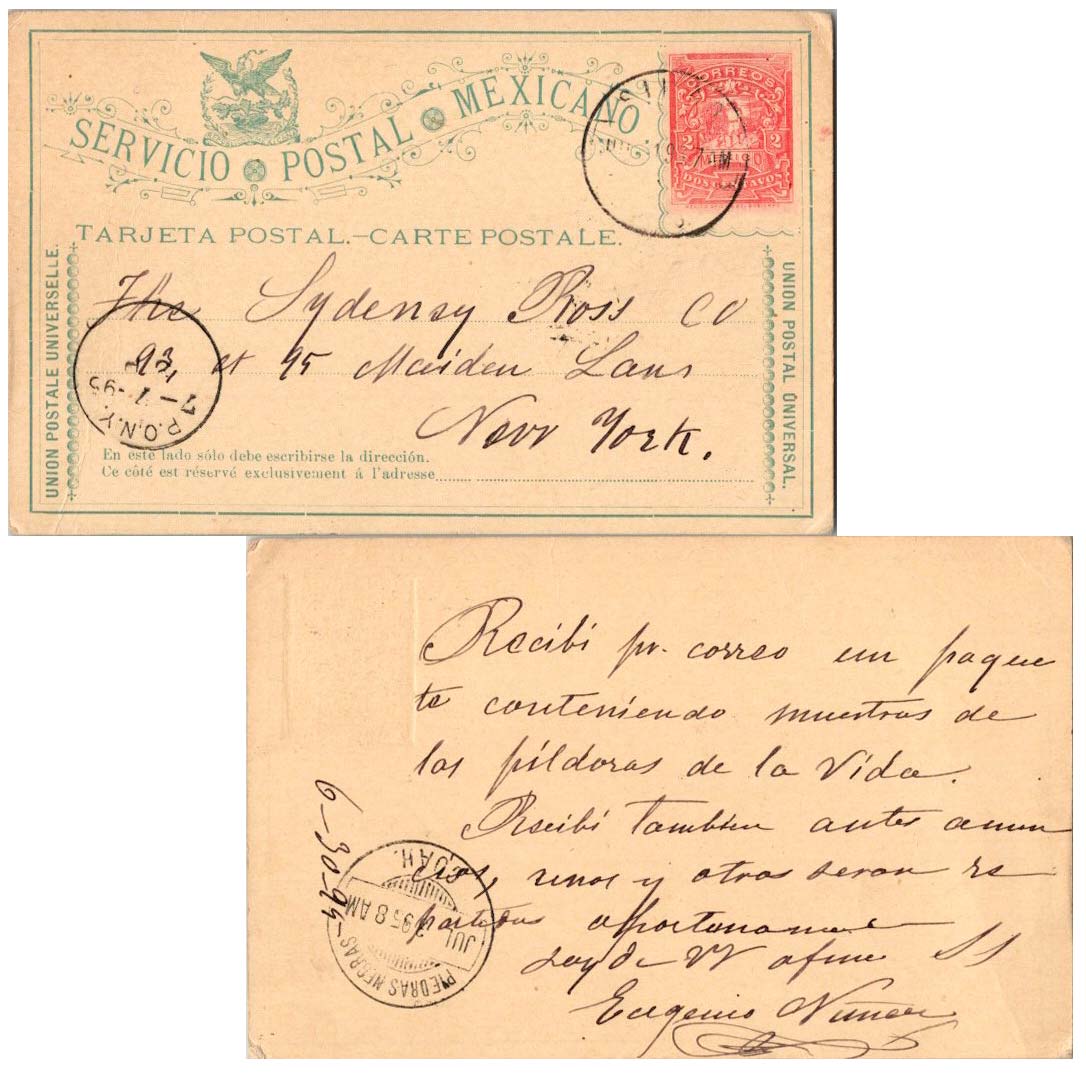 SERVICIO POSTAL MEXICANO
CORREOS
2 2
MEXICO
DOS CENTAVOS
TARJETA POSTAL.—CARTE POSTALE.
UNION POSTALE UNIVERSELLE.
UNION POSTAL UNIVERSAL.
The Sydensy Ross Co
93 et 95 Maiden Lans
New York.
P.O.N.Y.
7-95
En este lado sólo debe escribirse la dirección.
Ce côté est réservé exclusivement á l'adresse
Recibi pr. correo un paque
te conteniendo muestras de
las píldoras de la Vida.
Recibi tambien antes anun
cios, unos y otros seran re
partidos oportuname
Soy de VV afmo SS
Eugenio Nuñez
6-30-95
PIEDRAS NEGRAS
COAH.
JUL 95 8 AM